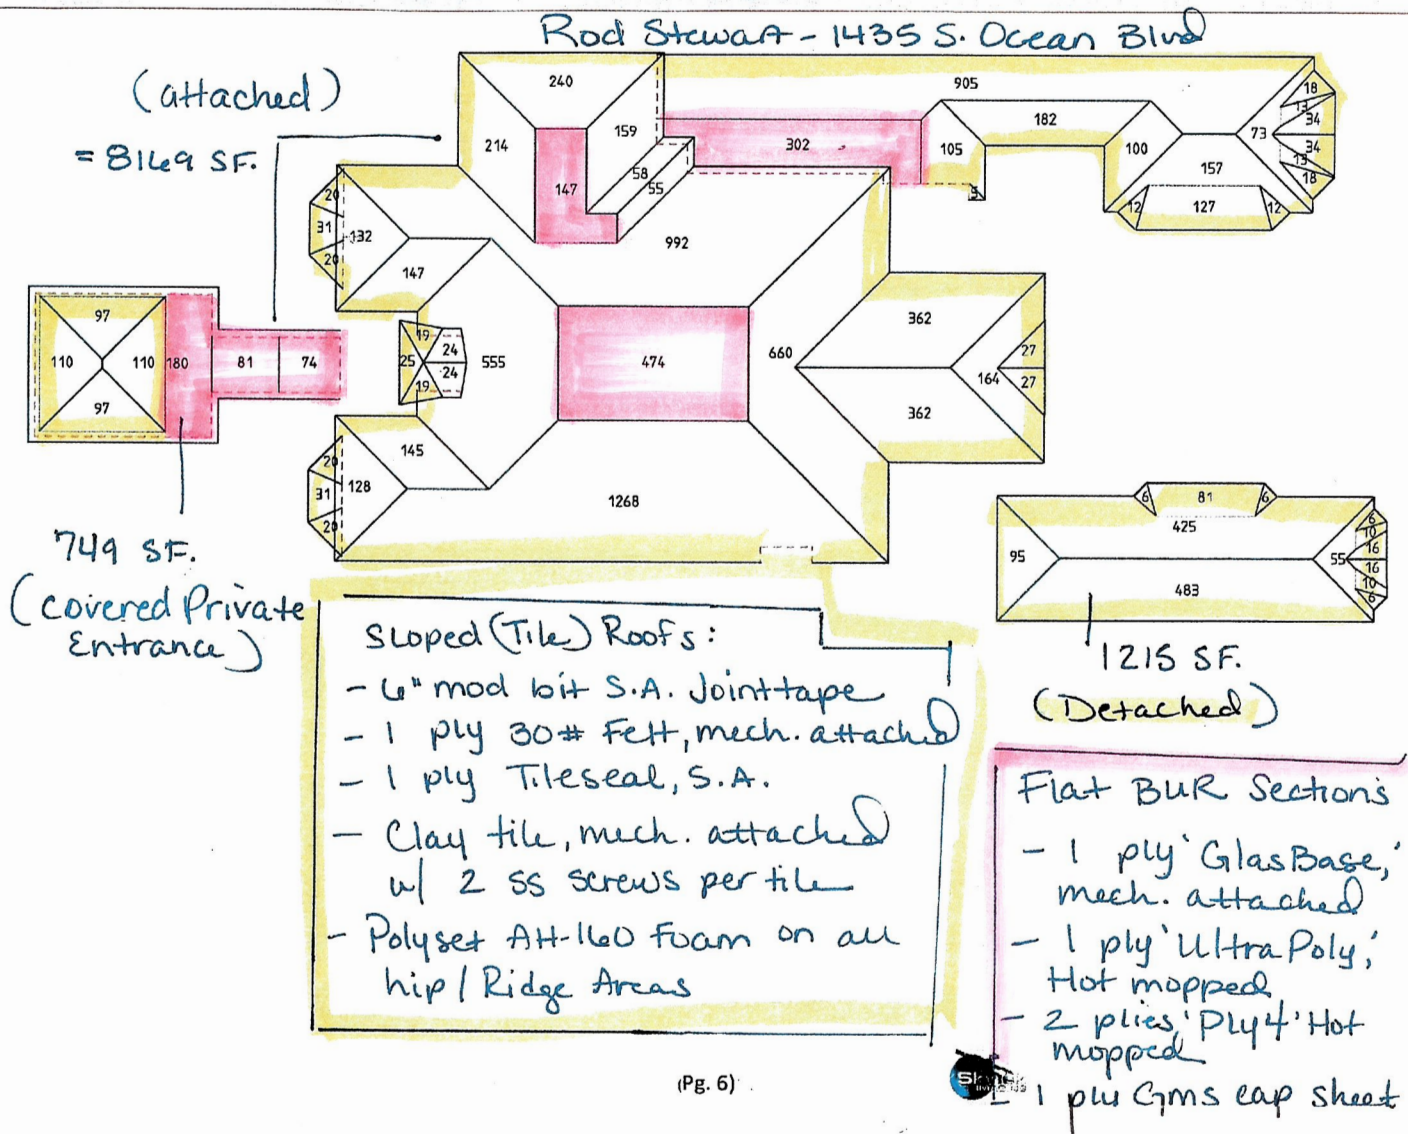 Rod Stewart - 1435 S. Ocean Blvd
(attached)
= 8169 SF.
240
905
18
13
34
34
13
18
73
214
159
302
105
182
100
157
58
55
147
5
12
127
12
20
31
20
132
147
992
97
110
110
97
180
81
74
19
25
24
24
19
555
474
660
362
362
164
27
27
145
20
31
20
128
1268
6
81
6
425
95
55
483
6
10
16
16
10
6
749 SF.
(covered Private
Entrance)
1215 SF.
(Detached)
Sloped (Tile) Roofs:
- 6" mod bit S.A. Joint tape
- 1 ply 30# Felt, mech. attached
- 1 ply Tileseal, S.A.
- Clay tile, mech. attached
w/ 2 SS screws per tile
- Polyset AH-160 Foam on all
hip / Ridge Areas
Flat BUR Sections
- 1 ply 'GlasBase,'
mech. attached
- 1 ply 'UltraPoly,'
Hot mopped
- 2 plies, 'Ply 4' Hot
mopped
- 1 ply Gms cap sheet
(Pg. 6)